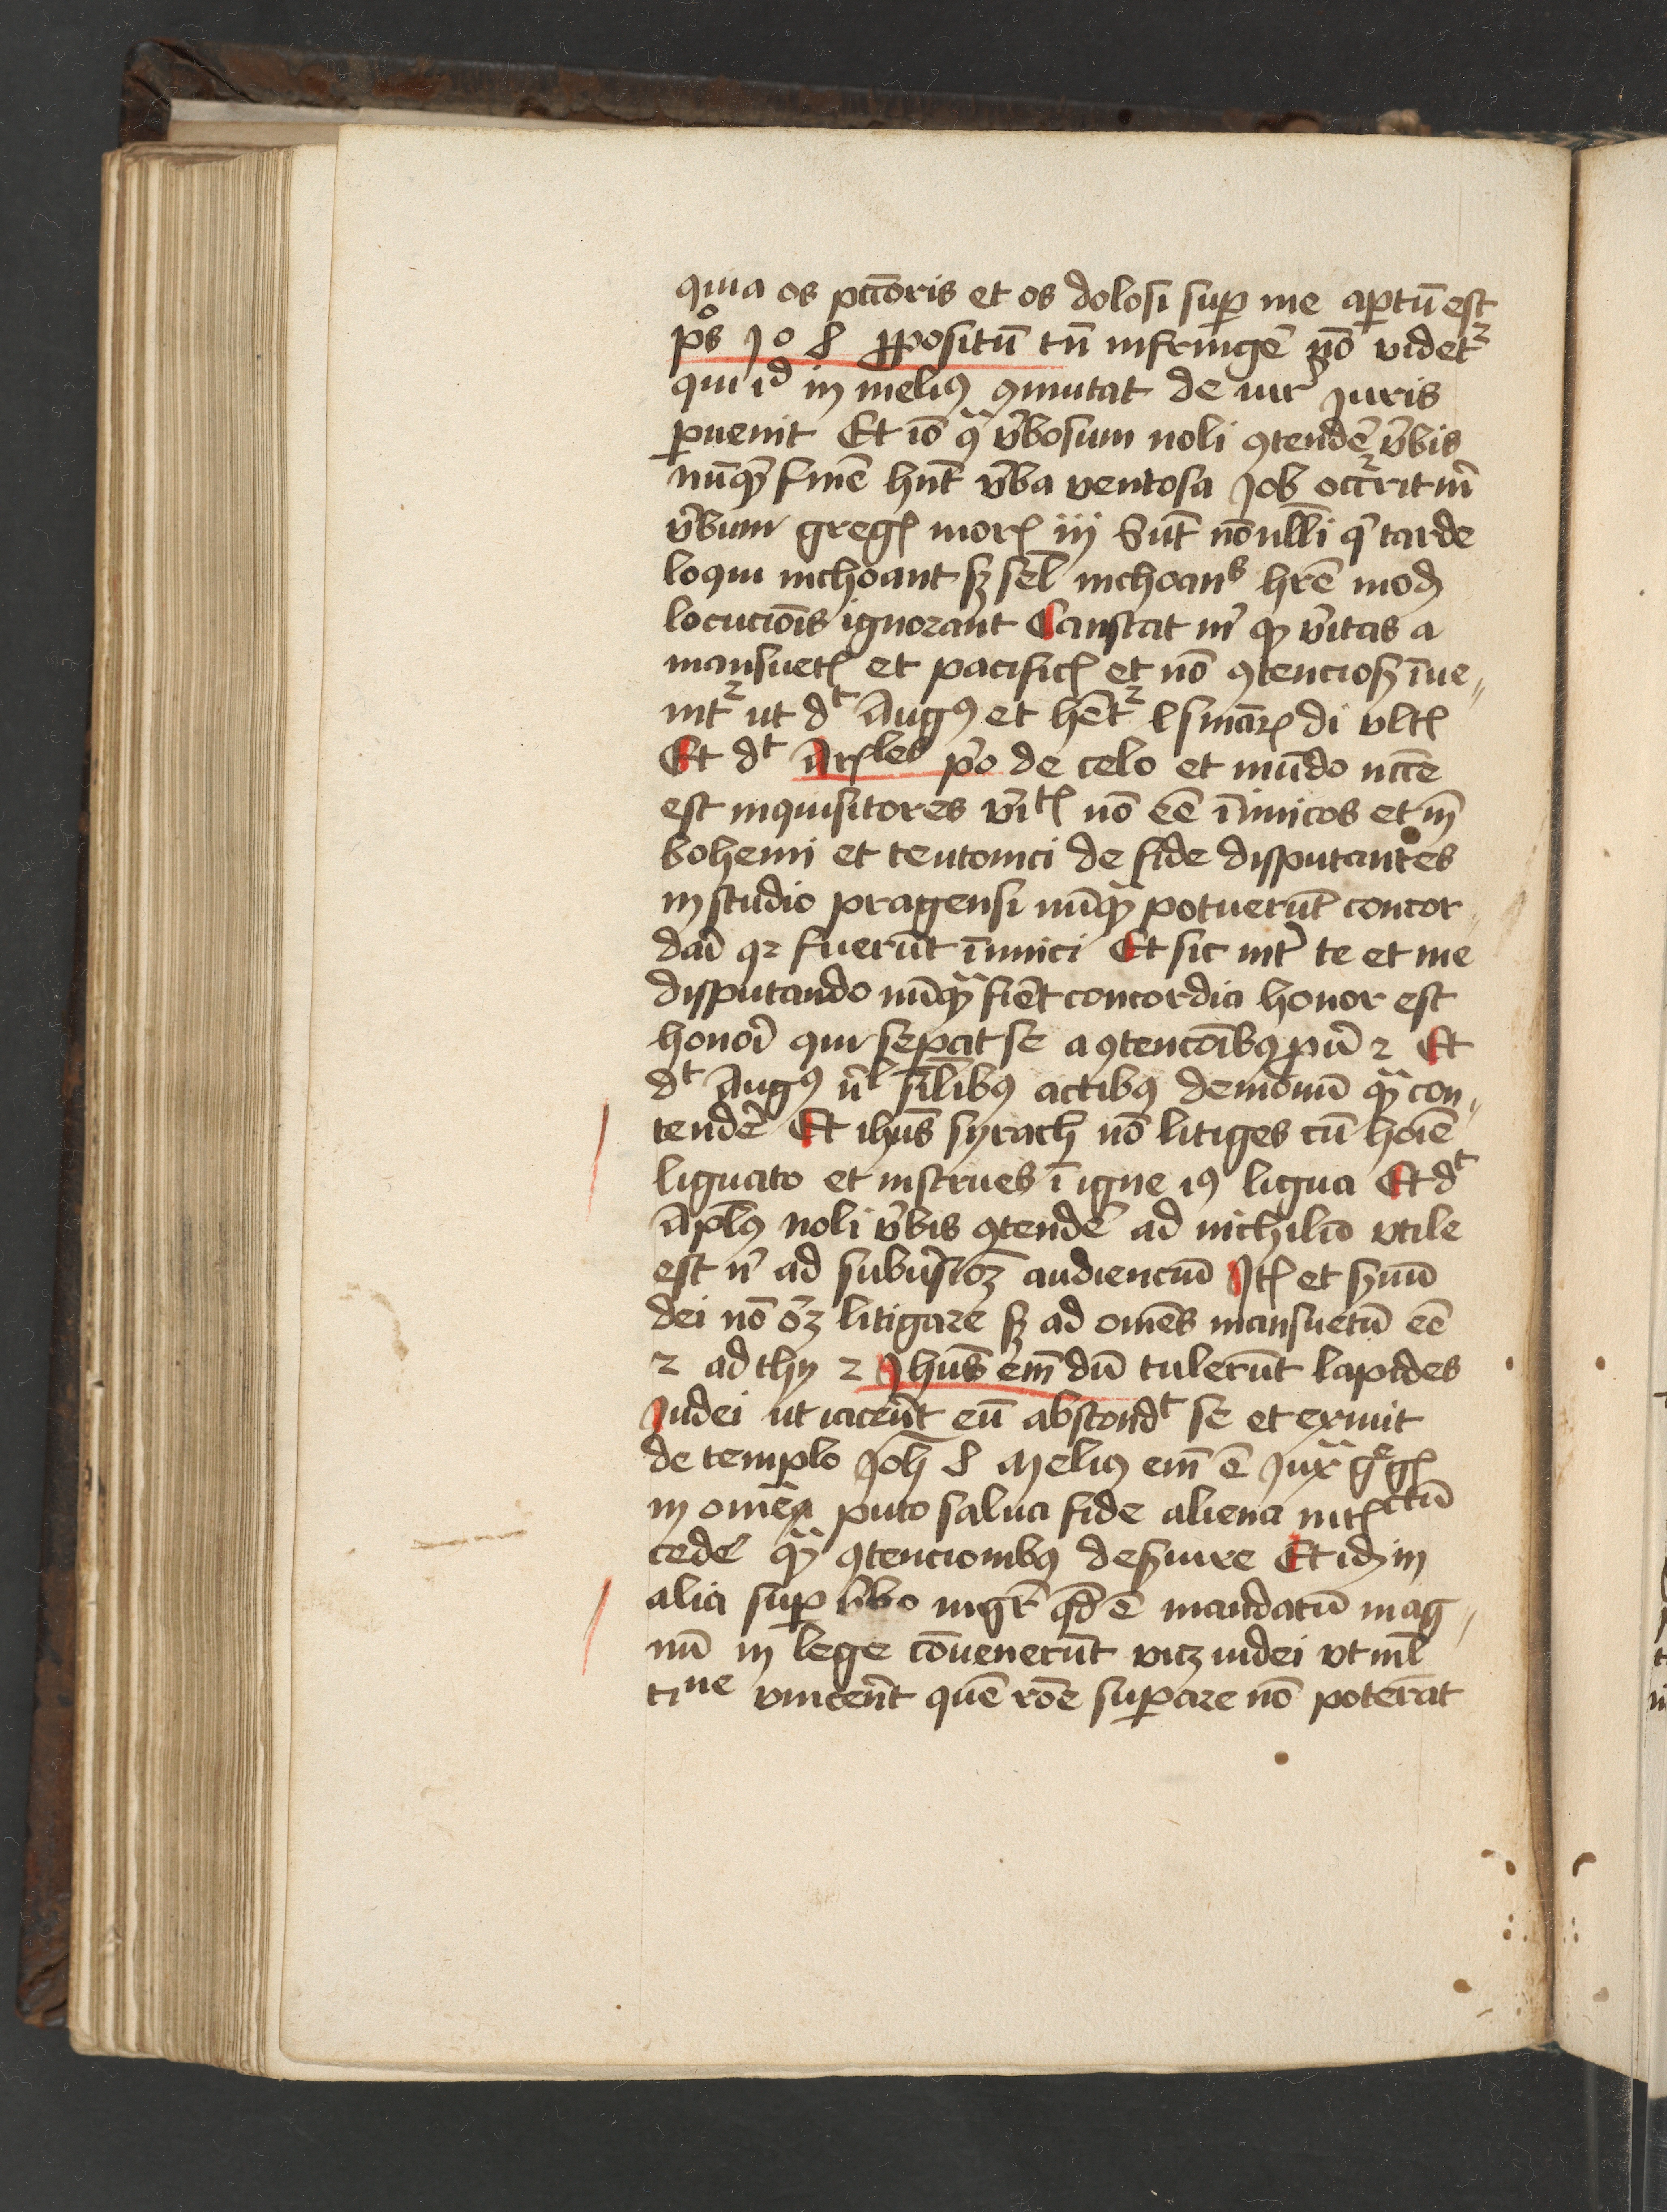 quia os pctoris et os dolosi sup me aptū est
ps 108 ppositū tn̄ infringe nō videtʳ
qui id in meliꝯ ꝯmutat de iur̾ Juris
puenit Et iō qͣ v̾bosum noli ꝯtende̾ v̾bis
nūqͣ finē hn̄t v̾ba ventosa Job occ̾rit m̄
v̾bum greg̾ mor̾ iij Sūt nōnulli q̾ tarde
loqui inchoant sꝫ sel̄ inchoans hr̄e modū
locucōis ignorant Constat n̾ qꝫ v̾itas a
mansuet̾ et pacific̾ et nō ꝯtenciosꝫ īue„
nitʳ ut dᵗ Augꝯ et hētʳ l smar̾ di vlt̾
Et dᵗ Ar̾les p̾o de celo et mūdo nccē
est inquisitores v̾it̾ nō eē īnimicos et m̄
bohemi et teutonici de fide disputantes
in studio pragensi nūqͣ potuerūt concor„
dai̾ qꝛ fuerūt īimici Et sic int̾ te et me
disputando nūqͣ fiet concordia honor est
honoī qui sepat se a ꝯtencōibꝯ pu̾ 2 Et
dᵗ Augꝯ n̄l silibꝯ actibꝯ demonū qͣ con„
tende̾ Et ihūs syrach nō litiges cū hoīe
liguato et instrues ī igne iꝯ ligua Et dᵗ
Aplꝯ noli v̾bis ꝯtende̾ ad nichilū vtile
est n̾ ad subu̾sioꝫ audienciū Jt̾ et s̾uū
dei nō oꝫ litigare sꝫ ad omēs mansuetū eē
2 ad thy 2 Jhūs em̄ dū tulerūt lapides
Judei ut iacer̄et eū abscondᵗ se et exiuit
de templo Joh̄ 8 Meliꝯ em̄ ē Juxͣ g̾g̾
in omēa puto salua fide aliena int̾ctū
cede̾ qͣ ꝯtencionibꝯ des̾uire Et idꝫ in
alia sup v̾bo mgr̄ qd̄ ē mandatū mag„
nū in lege cōuenerūt vicꝫ iudei vt ml̄
tine vincer̄et quē rōe supare nō poterāt